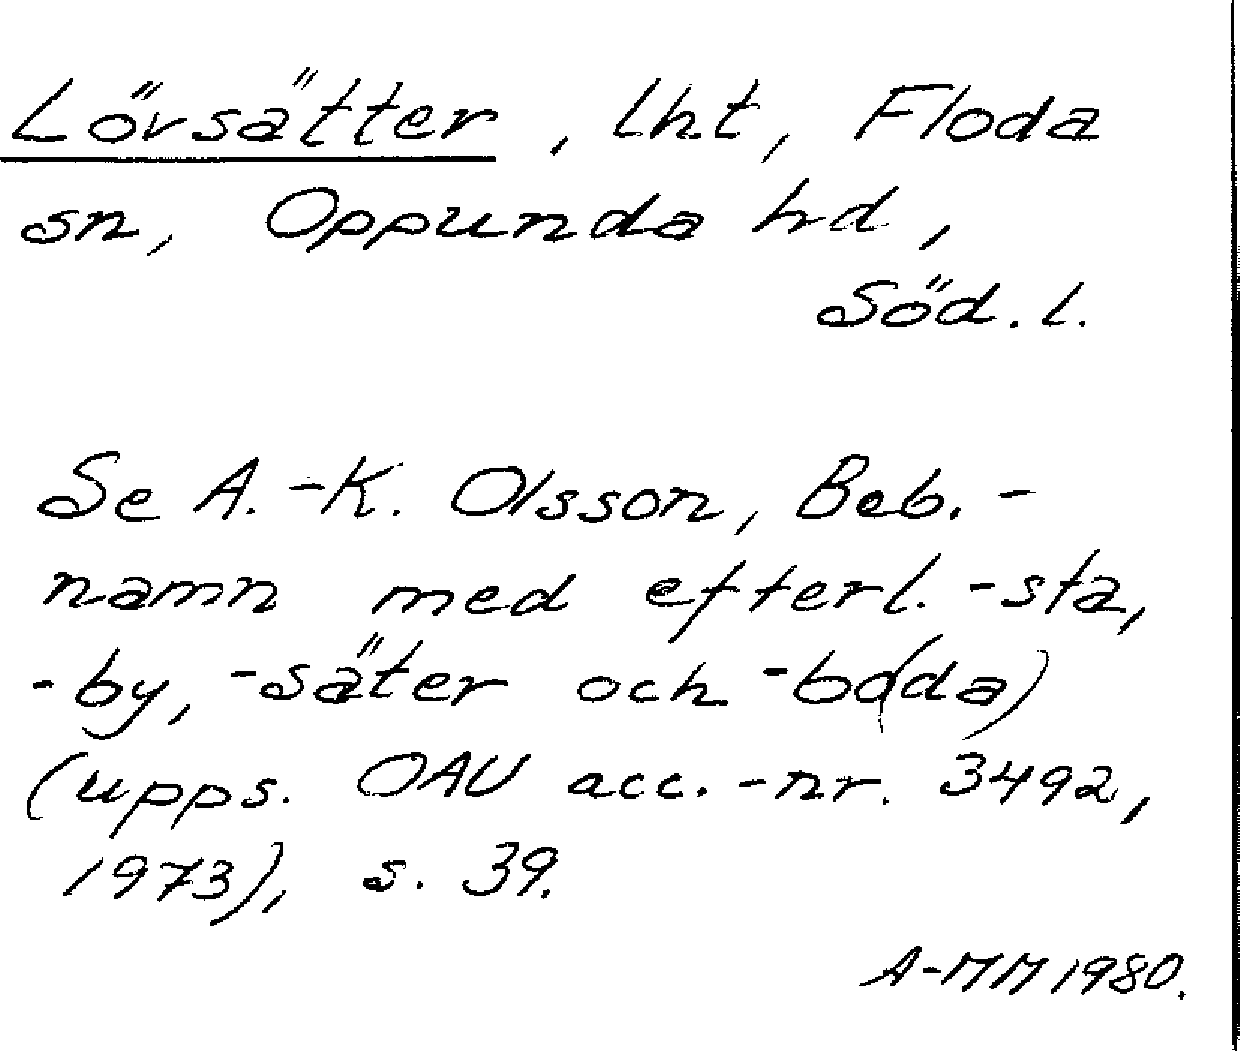 Lövsätter, lht, Floda
sn, Oppunda hd,
Söd. l.
Se A.-K. Olsson, Beb.-
namn med efterl. -sta,
-by, -säter och -bo(da)
(upps. OAU acc.-nr. 3492,
1973), s. 39.
A-MM 1980.